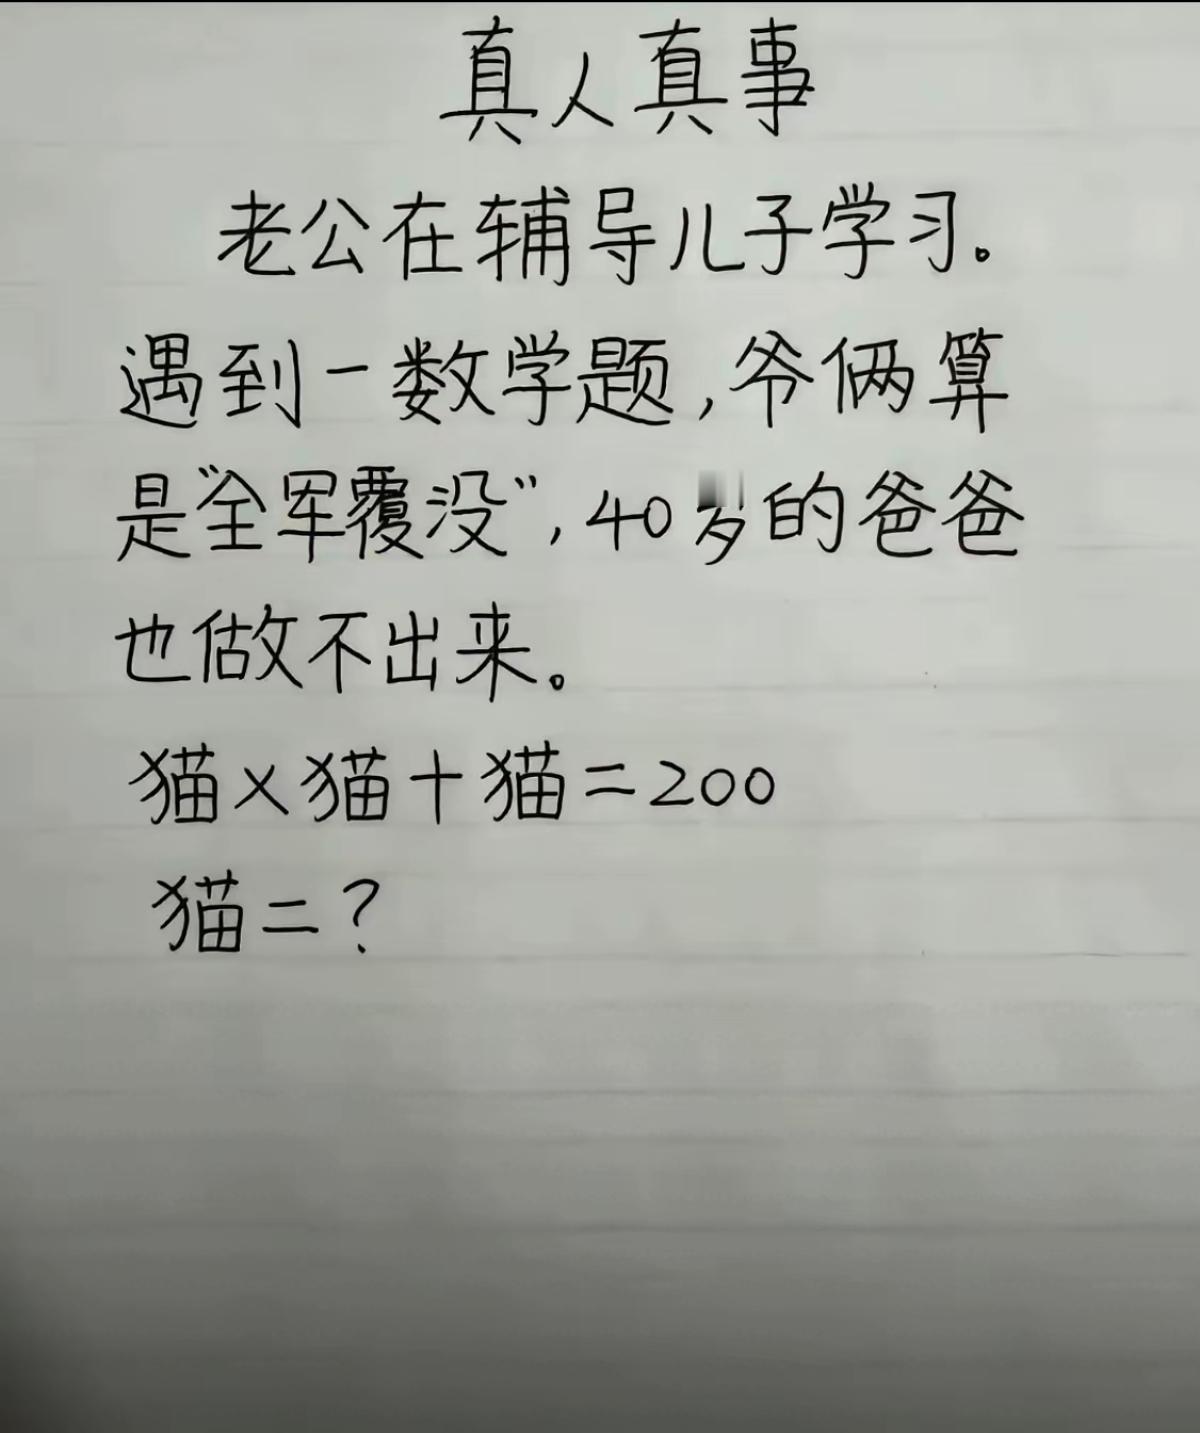 真人真事
老公在辅导儿子学习。
遇到一数学题，爷俩算
是“全军覆没”，40岁的爸爸
也做不出来。
猫×猫+猫=200
猫=？